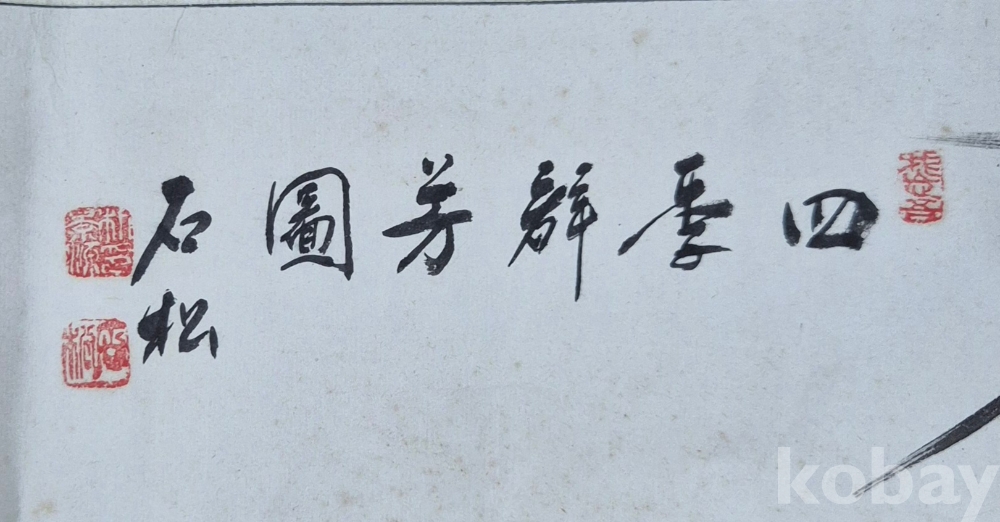 四季群芳圖
石松
kobay